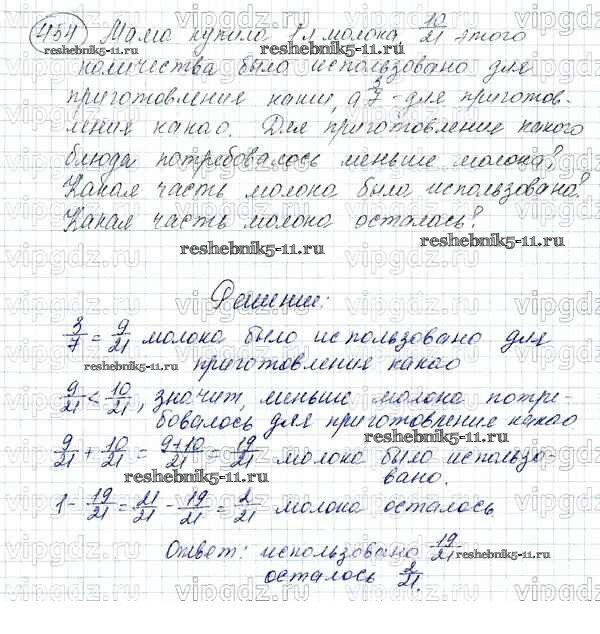 454 Мама купила 1 л молока. 10/21 этого
количества было использовано для
приготовления каши, а 3/7 - для приготов-
ления какао. Для приготовление какого
блюда потребовалось меньше молока?
Какая часть молока была использована?
Какая часть молока осталась?
Решение:
3/7 = 9/21 молока было использовано для
приготовления какао
9/21 < 10/21, значит, меньше молока потре-
бовалось для приготовление какао
9/21 + 10/21 = 9+10/21 = 19/21 молока было использо-
вано.
1 - 19/21 = 21/21 - 19/21 = 2/21 молока осталось.
Ответ: использовано 19/21
осталось 2/21.
reshebnik5-11.ru
vipgdz.ru